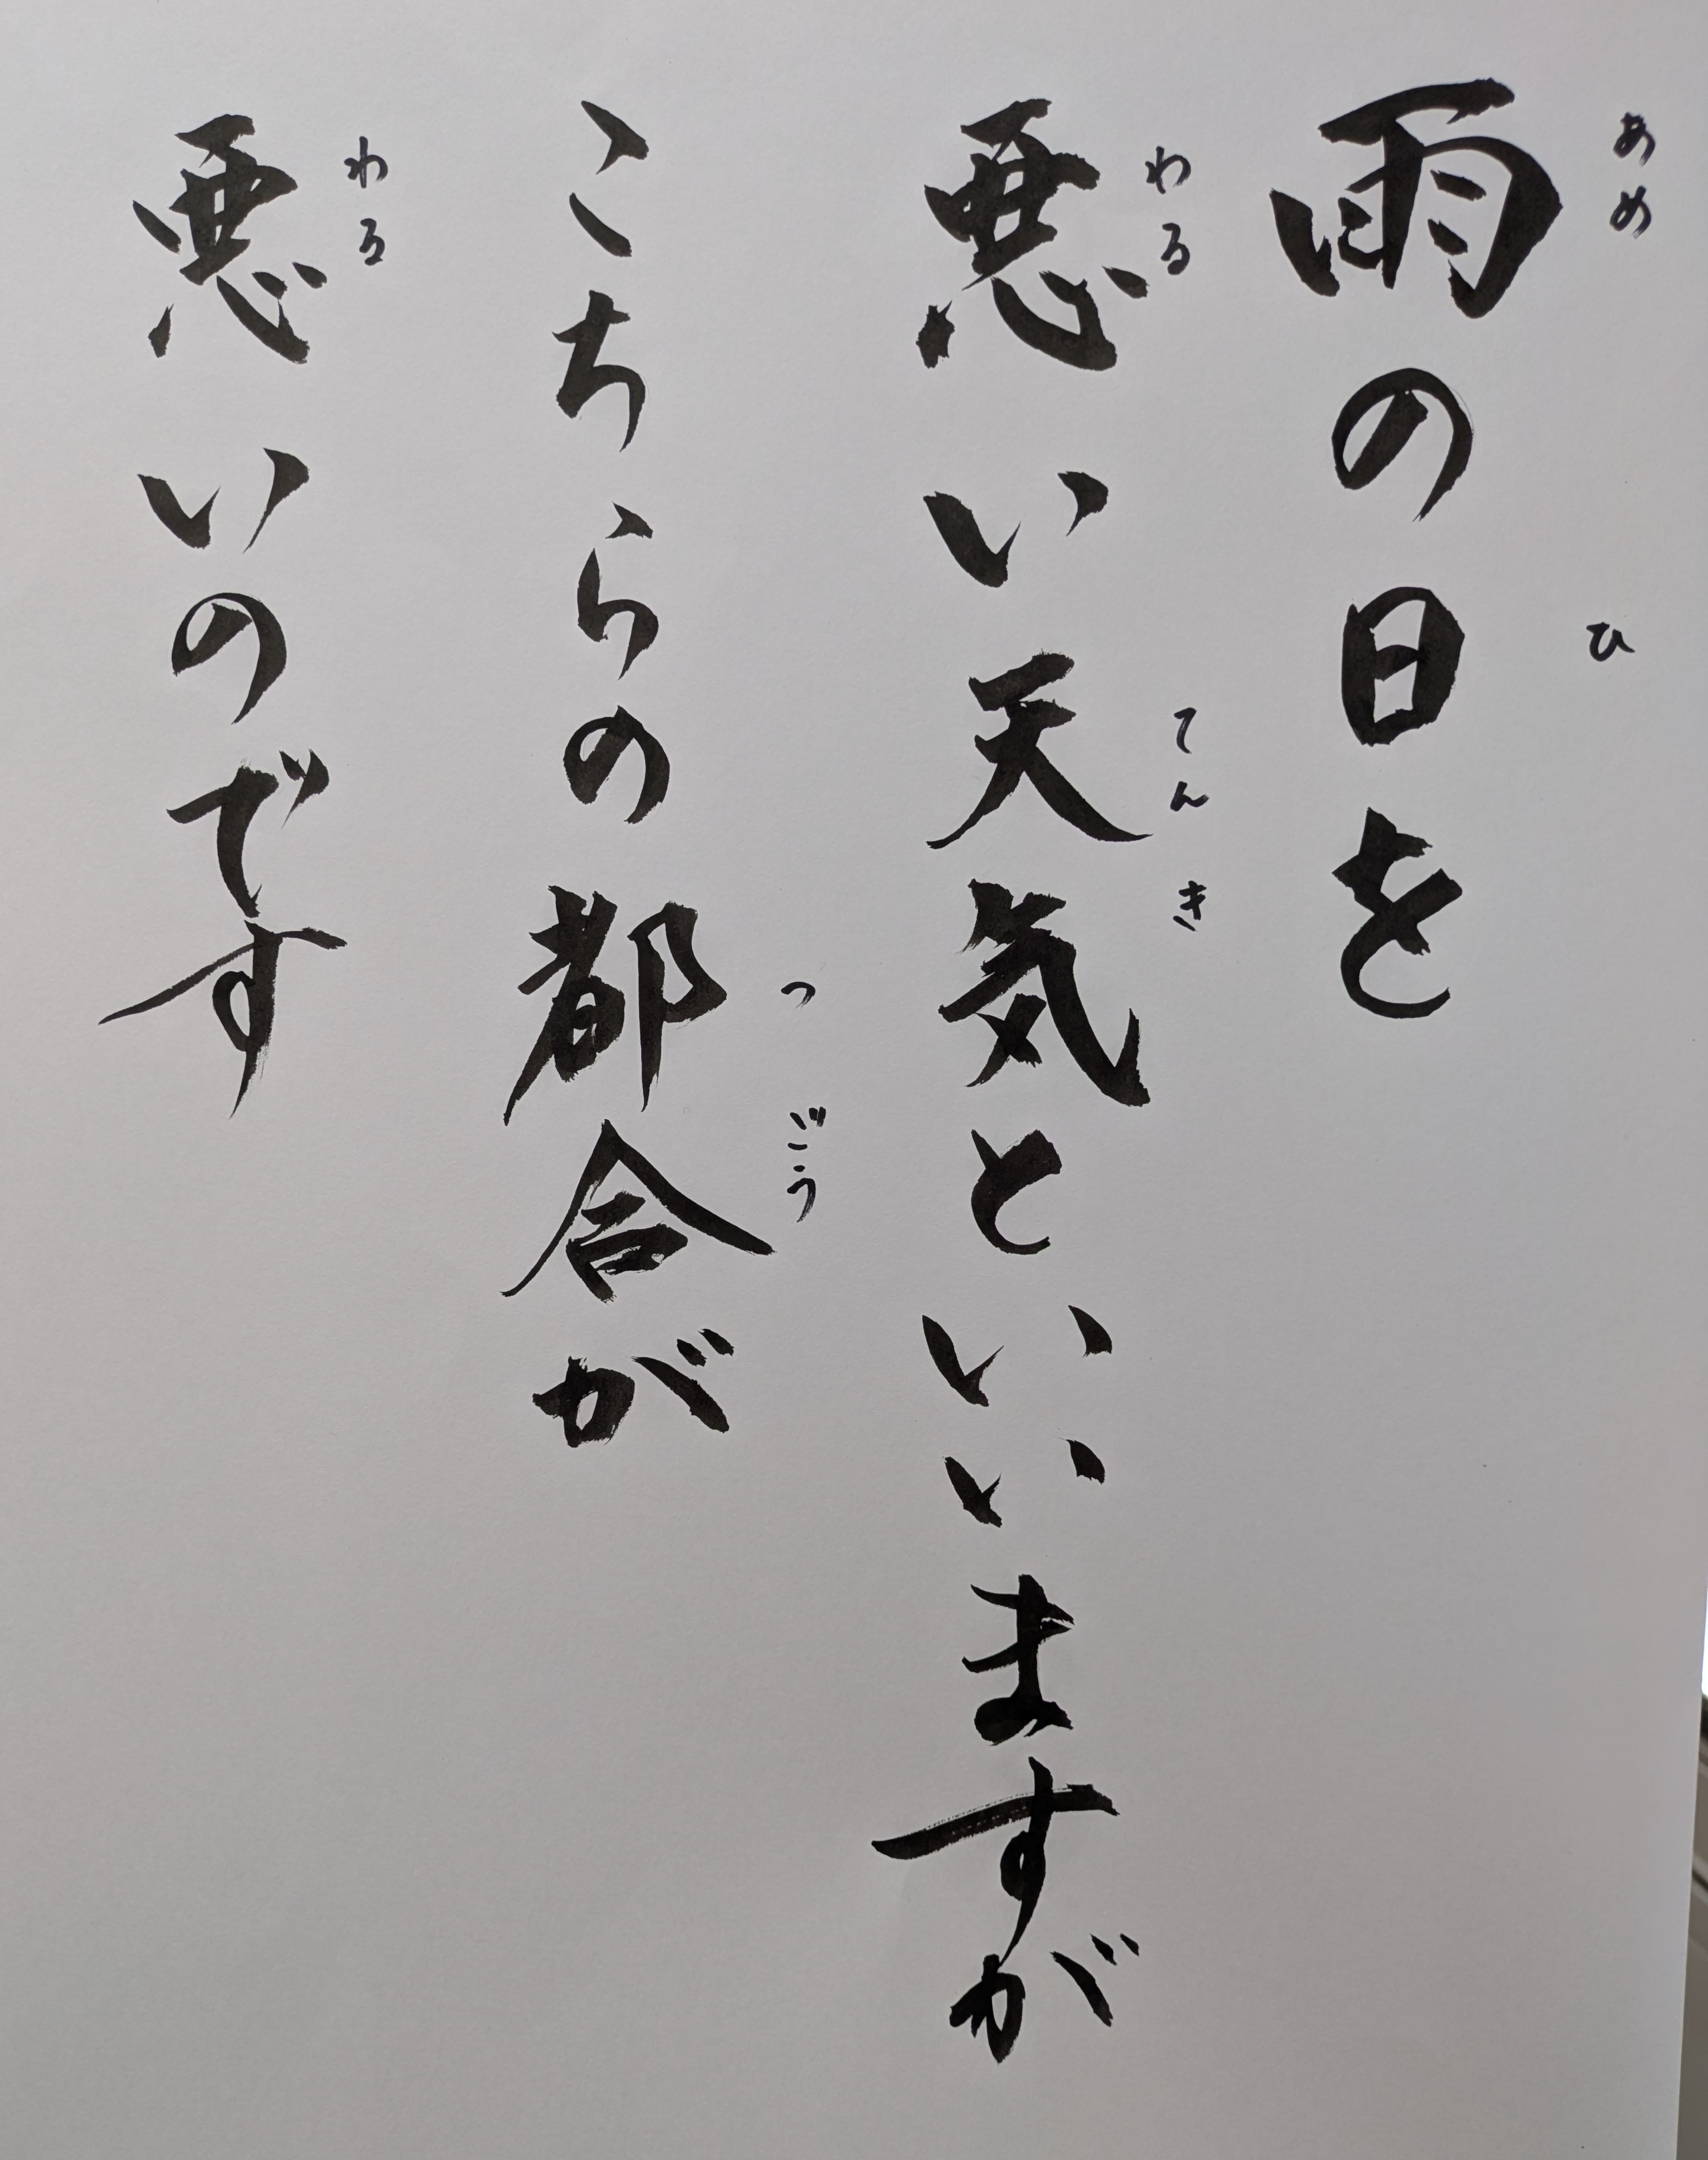 雨の日を
悪い天気といいますが
こちらの都合が
悪いのです
あめ
ひ
わる
てんき
つごう
わる